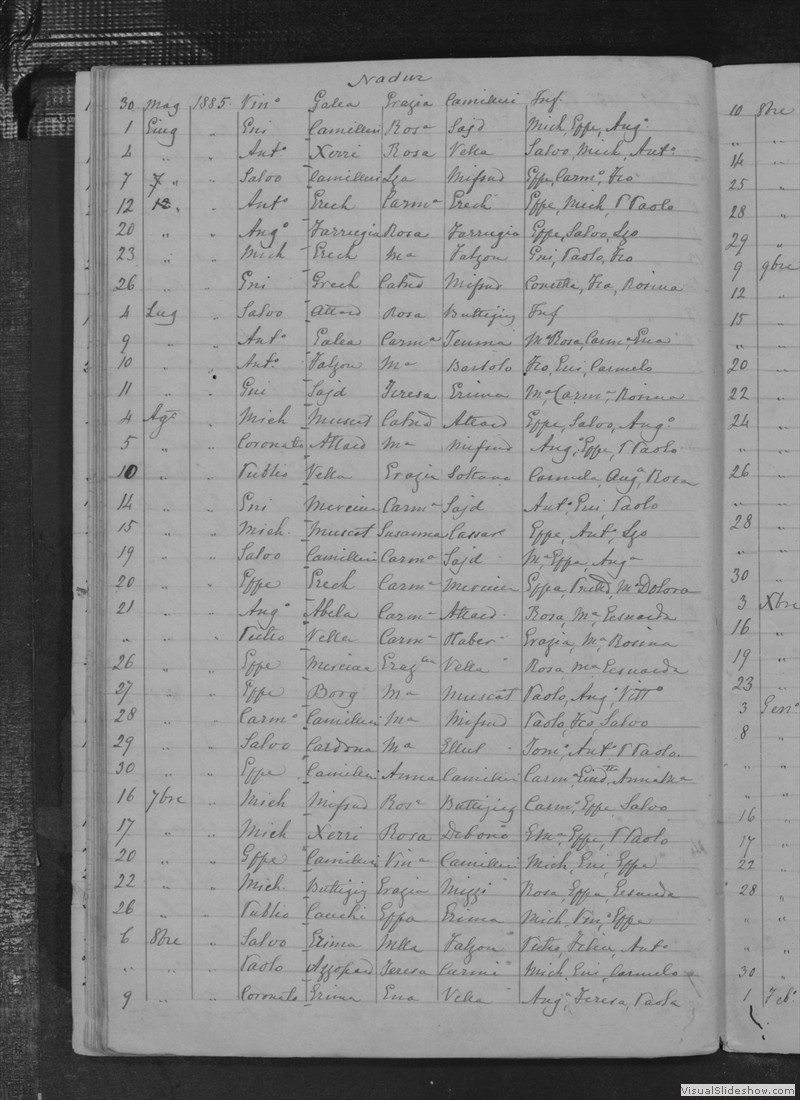 Nadur
30 Mag 1885 Vin° Galea Grazia Camilleri Inf.
1 Giug " Gni Camilleri Rosa Sajd Mich, Gppe, Ang°
4 " " Ant° Xerri Rosa Vella Salvo, Mich, Ant°
7 7 " Salvo Camilleri Mifsud Gppe, Carm°, Fco
12 12 " Ant° Grech Carm a Grech Gppe, Mich, P Paolo
20 " " Ang° Farrugia Rosa Farrugia Gppe, Salvo,
23 " " Mich Grech Ma Falzon Gni, Paolo, Fco
26 " " Gni Grech Catnd Mifsud Concetta, Fca, Rosina
4 Lug " Salvo Attard Rosa Buttigieg Inf
9 " " Ant° Galea Carm a Teuma Ma Rosa, Carm a,
10 " " Ant° Falzon Ma Bartolo Fco, Gni, Carmelo
11 " " Gni Sajd Teresa Grima Ma Carm a, Rosina
4 Ag° " Mich Muscat Catnd Attard Gppe, Salvo, Ang°
5 " " Coronato Attard Ma Mifsud Ang°, Gppe, P Paolo
10 " " Publio Vella Grazia Soltana Carmela, Ang a, Rosa
14 " " Gni Mercieca Carm a Sajd Ant°, Gni, Paolo
15 " " Mich Muscat Susanna Cassar Gppe, Ant°,
19 " " Salvo Camilleri Carm a Sajd Ma Gppa, Ang a
20 " " Gppe Grech Carm a Mercieca Gppa, Ma Dolora
21 " " Ang° Abela Carm a Attard Rosa, Ma,
" " " Pietro Vella Carm a Haber Grazia, Ma, Rosina
26 " " Gppe Mercieca Vella Rosa, Ma
27 " " Gppe Borg Ma Muscat Paolo, Ang°, Vitt°
28 " " Carm° Camilleri Ma Mifsud Paolo, Fco, Salvo
29 " " Salvo Cardona Ma Ellul Tom°, Ant°, P Paolo
30 " " Gppe Camilleri Anna Camilleri Carm a,
16 7bre " Mich Mifsud Rosa Buttigieg Carm°, Gppe, Salvo
17 " " Mich Xerri Rosa Debono Gppe, P Paolo
20 " " Gppe Camilleri Vin a Camilleri Mich, Gni, Gppe
22 " " Mich Buttigieg Grazia Mizzi Rosa, Gppa,
26 " " Publio Cauchi Gppa Grima Mich, Vin°, Gppe
6 8bre " Salvo Grima Falzon Pietro, Ant°
" " " Paolo Azzopard Teresa Curmi Mich, Gni, Carmelo
9 " " Coronato Grima Vella Ang a, Teresa, Paola
10 8bre
" "
14 "
25 "
28 "
29 "
9 9bre
12 "
15 "
" "
20 "
22 "
24 "
" "
26 "
" "
28 "
" "
30 "
3 Xbre
16 "
19 "
23 "
3 Gen°
8 "
" "
" "
16 "
17 "
22 "
28 "
" "
" "
30 "
1 Feb°
VisualSlideshow.com